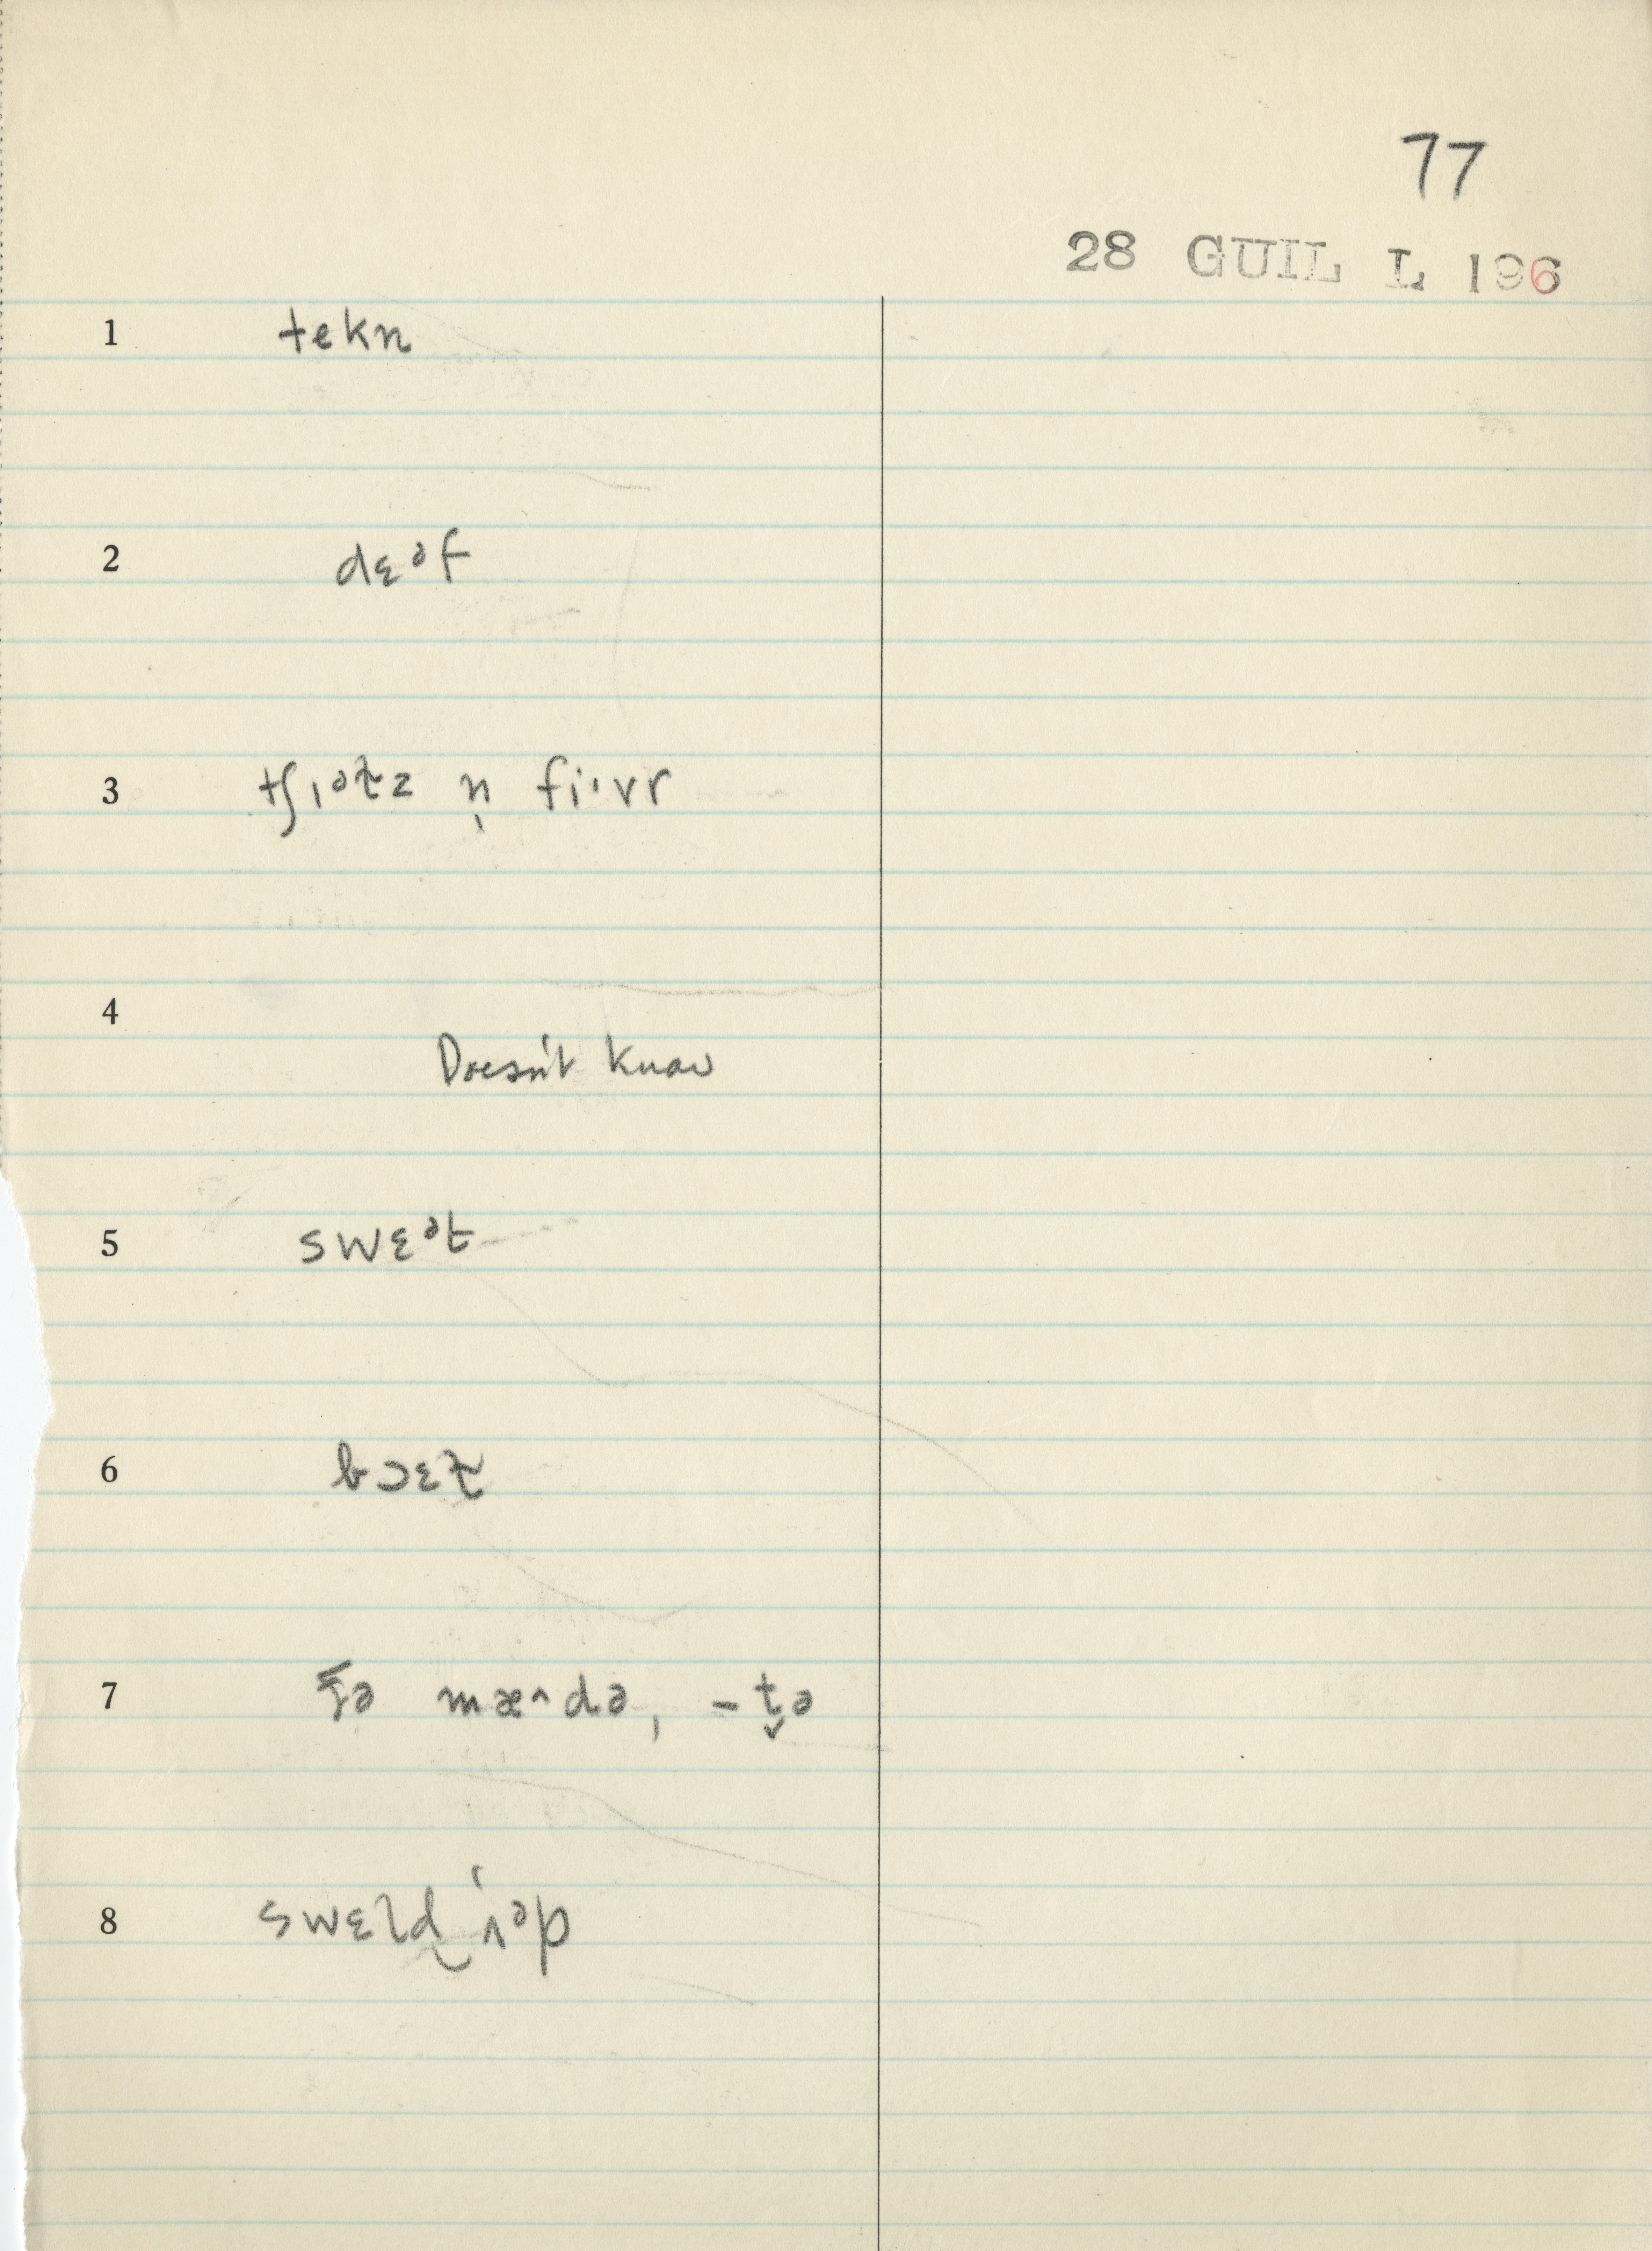 77
28 GUIL L 196
1 tekn
2 dɛᵊf
3 tʃɪᵊt̬z n̩ fi·vr
4
Doesn't know
5 swɛᵊt
6 bɔɛɫ
7 ðə mæ^də, -t̬ə
8 swɛld ʌᵊp